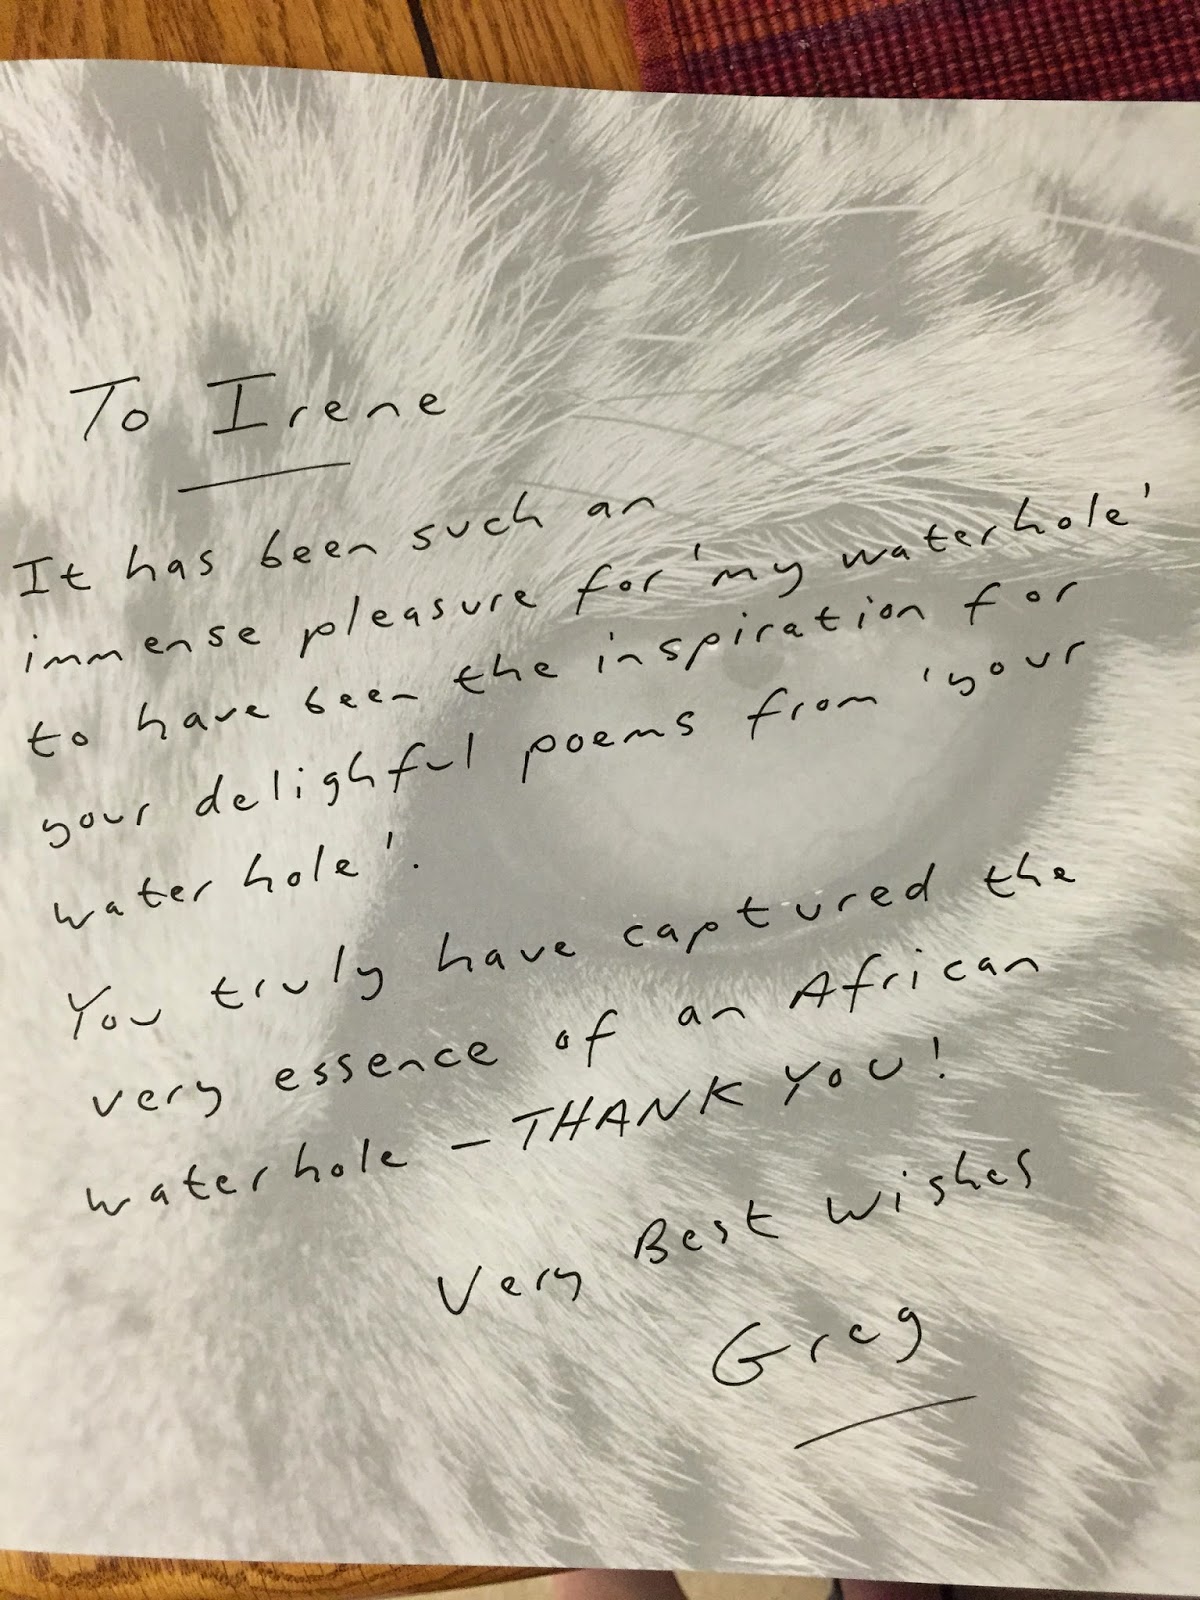 To Irene
It has been such an
immense pleasure for 'my waterhole'
to have been the inspiration for
your delighful poems from 'your
waterhole'.
You truly have captured the
very essence of an African
waterhole – THANK YOU!
Very Best Wishes
Greg